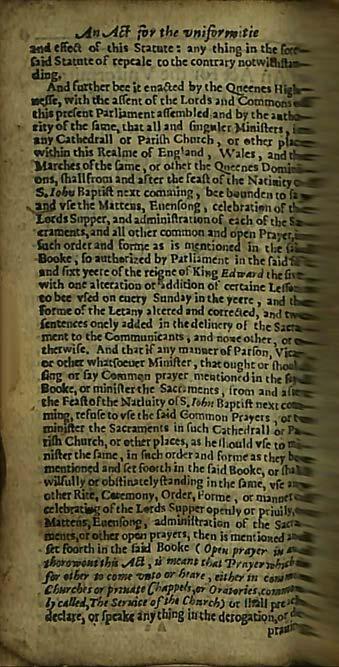 An Act for the vniformitie
and effect of this Statute: any thing in the fore-
said Statute of repeale to the contrary notwithstan-
ding.
And further bee it enacted by the Queenes High-
nesse, with the assent of the Lords and Commons
this present Parliament assembled and by the autho-
rity of the same, that all and singuler Ministers, i
any Cathedrall or Parish Church, or other plac
within this Realme of England, Wales, and th
Marches of the same, or other the Queenes Domini
ons, shall from and after the feast of the Natiuity o
S. Iohn Baptist next comming, bee bounden to sa
and vse the Mattens, Euensong, celebration of th
Lords Supper, and administration of each of the Sa
craments, and all other common and open Prayer, i
such order and forme as is mentioned in the sai
Booke, so authorized by Parliament in the said
and sixt yeere of the reigne of King Edward the six
with one alteration or addition of certaine Lesso
to bee vsed on euery Sunday in the yeere, and th
forme of the Letany altered and corrected, and tw
sentences onely added in the deliuery of the Sacra
ment to the Communicants, and none other, or o
therwise. And that if any manner of Parson, Vica
or other whatsoeuer Minister, that ought or shoul
sing or say Common prayer mentioned in the say
Booke, or minister the Sacraments, from and afte
the Feast of the Natiuity of S. Iohn Baptist next com
ming, refuse to vse the said Common Prayers, or t
minister the Sacraments in such Cathedrall or Pa
rish Church, or other places, as he should vse to mi
nister the same, in such order and forme as they be
mentioned and set foorth in the said Booke, or shal
wilfully or obstinately standing in the same, vse an
other Rite, Ceremony, Order, Forme, or manner
celebrating of the Lords Supper openly or priuily,
Mattens, Euensong, administration of the Sacra
ments, or other open prayers, then is mentioned a
set foorth in the said Booke (Open prayer in an
thorowout this Act, is meant that Prayer which
for other to come vnto or heare, either in comm
Churches or priuate Chappels, or Oratories, commo
ly called, The Seruice of the Church) or shall preach
declare, or speake any thing in the derogation, or
prauing